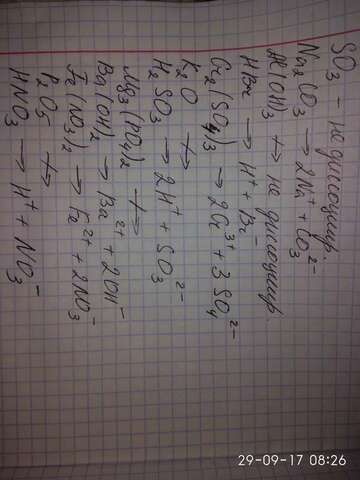 SO₃ - не диссоциир.
Na₂CO₃ → 2Na⁺ + CO₃²⁻
Al(OH)₃ ↛ не диссоциир.
HBr → H⁺ + Br⁻
Cr₂(SO₄)₃ → 2Cr³⁺ + 3SO₄²⁻
K₂O ↛
H₂SO₃ → 2H⁺ + SO₃²⁻
Mg₃(PO₄)₂ ↛
Ba(OH)₂ → Ba²⁺ + 2OH⁻
Fe(NO₃)₂ → Fe²⁺ + 2NO₃⁻
P₂O₅ ↛
HNO₃ → H⁺ + NO₃⁻
29-09-17 08:26